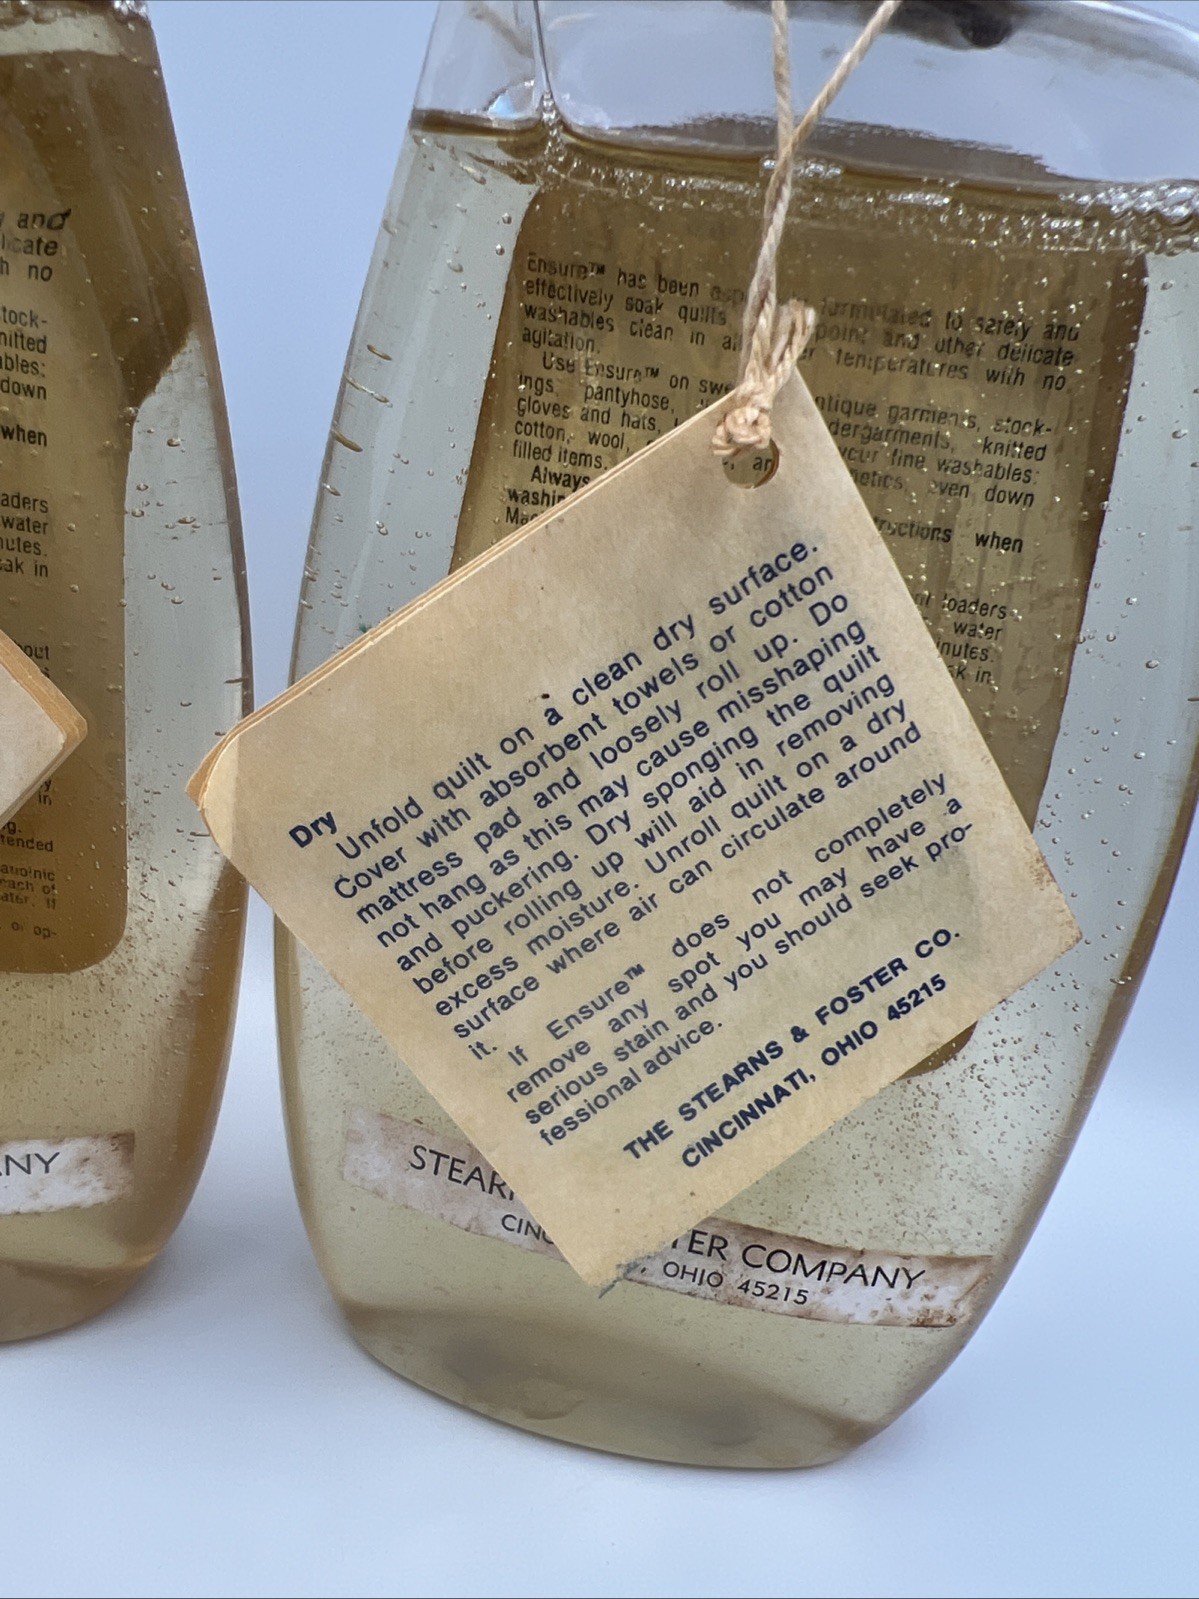 y and
licate
h no
tock-
nitted
bles:
down
when
aders
water
nutes.
ak in
out
in
g.
tended
each of
ater. If
or op-
ANY
Ensure™ has been formulated to safely and
effectively soak quilts point and other delicate
washables clean in al er temperatures with no
agitation.
Use Ensure™ on swe ntique garments, stock-
ings, pantyhose, dergarments, knitted
gloves and hats, your fine washables:
cotton, wool, hetics, even down
filled items.
Always structions when
washin
loaders
water
inutes.
ak in
Dry
Unfold quilt on a clean dry surface.
Cover with absorbent towels or cotton
mattress pad and loosely roll up. Do
not hang as this may cause misshaping
and puckering. Dry sponging the quilt
before rolling up will aid in removing
excess moisture. Unroll quilt on a dry
surface where air can circulate around
it.
If Ensure™ does not completely
remove any spot you may have a
serious stain and you should seek pro-
fessional advice.
THE STEARNS & FOSTER CO.
CINCINNATI, OHIO 45215
STEAR TER COMPANY
CINC , OHIO 45215